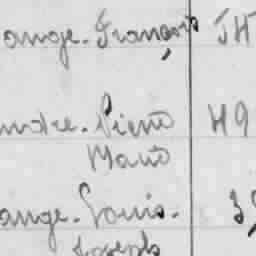 ange. François JH
ndre. Pierre 49
Marie
ange. Louis. 3
Joseph